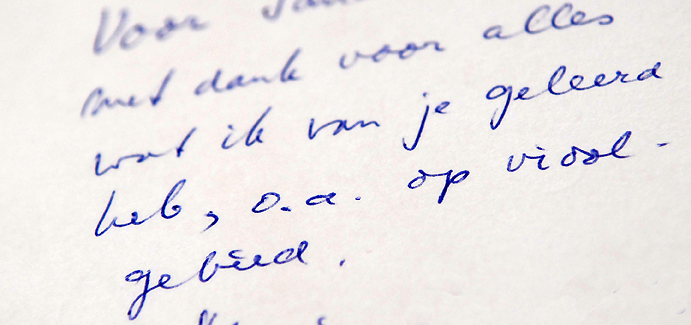 Voor
met dank voor alles
wat ik van je geleerd
heb, o.a. op viool-
gebied.